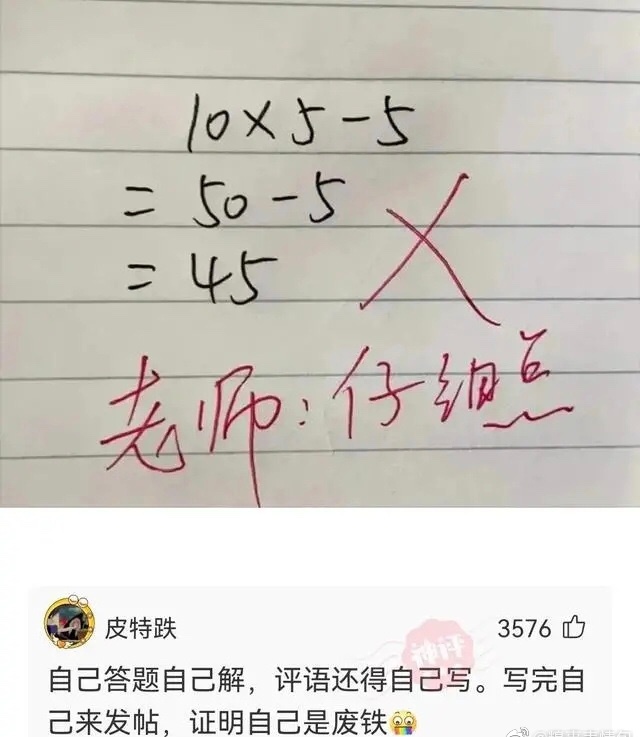 10×5-5
=50-5
=45
老师:仔细点
皮特跌
3576
自己答题自己解，评语还得自己写。写完自
己来发帖，证明自己是废铁